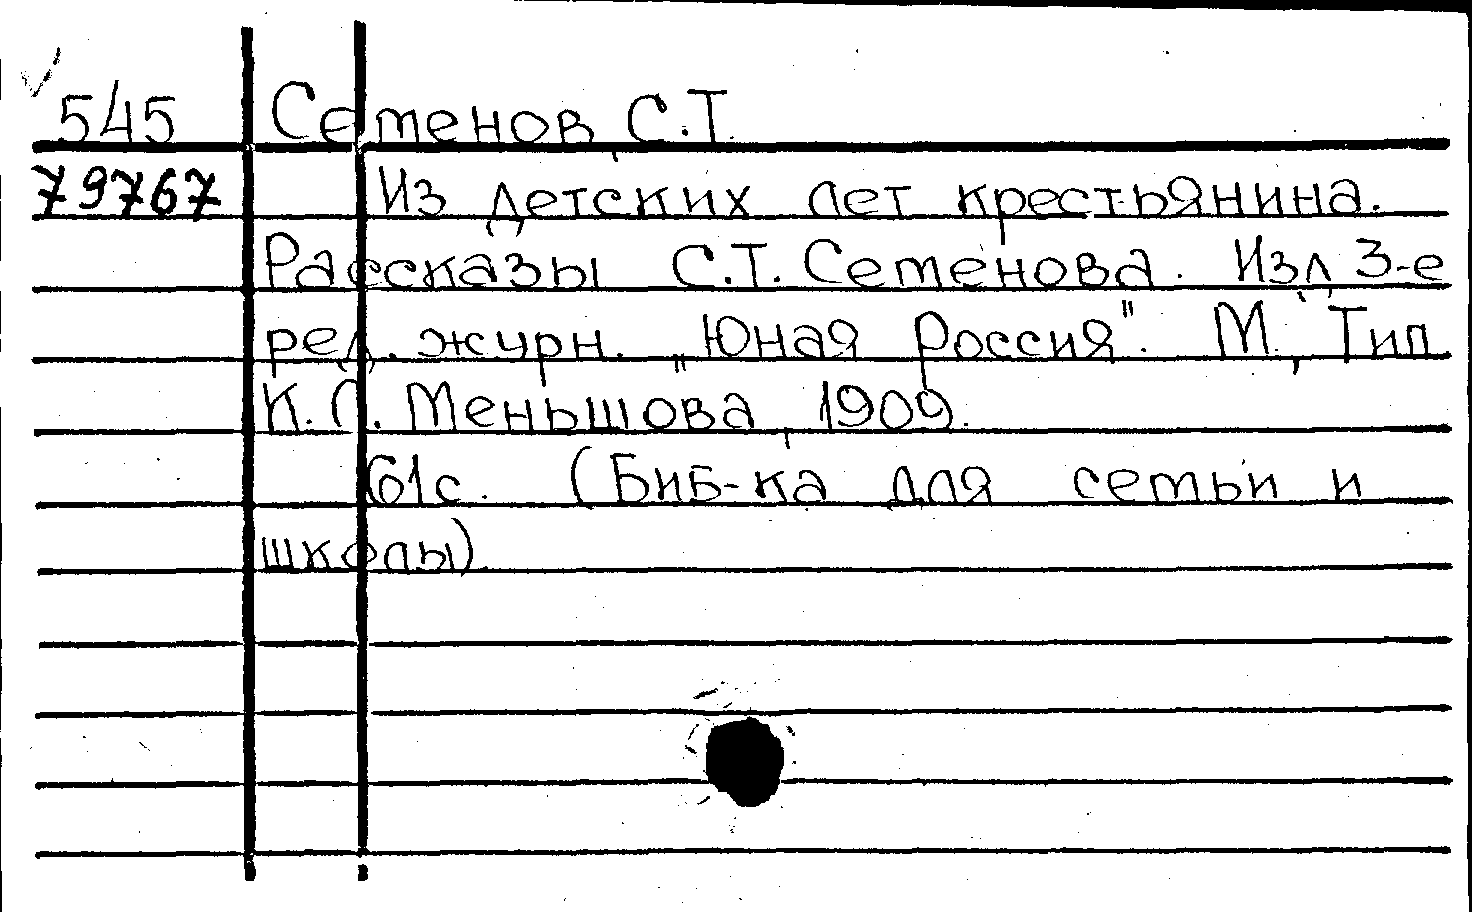 545 Семенов, С.Т.
79767 Из детских лет крестьянина.
Рассказы С.Т. Семенова. Изд. 3-е
ред. журн. „Юная Россия". М., Тип.
К.Л. Меньшова, 1909.
61с. (Биб-ка для семьи и
школы).